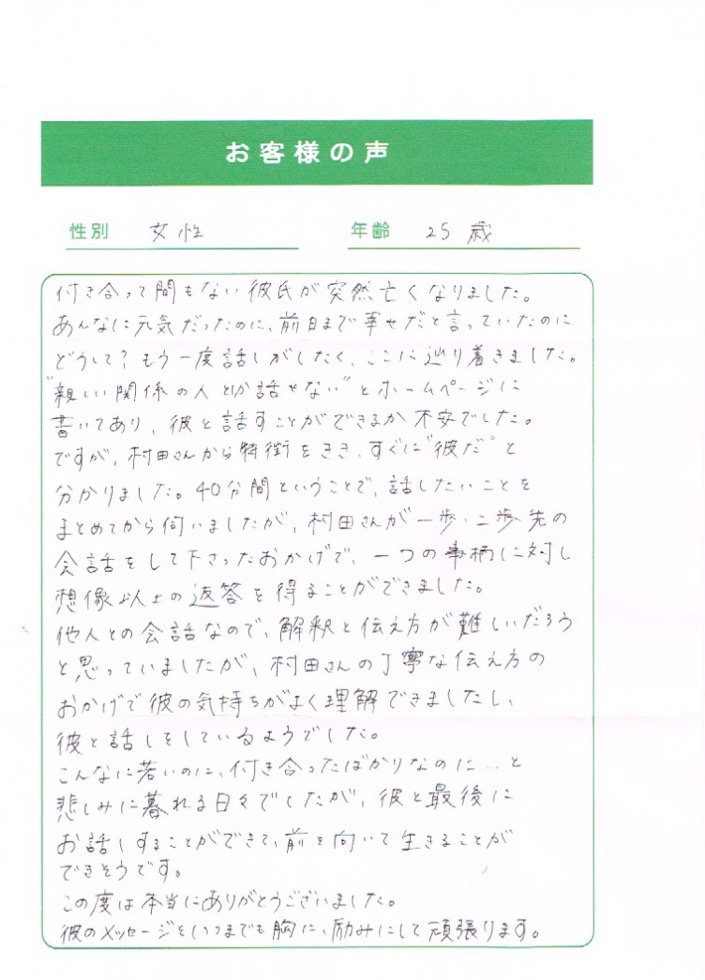 お客様の声
性別 女性 年齢 25歳
付き合って間もない彼氏が突然亡くなりました。
あんなに元気だったのに、前日まで幸せだと言っていたのに
どうして?もう一度話しがしたく、ここに辿り着きました。
"親しい関係の人とか話せない"とホームページに
書いてあり、彼と話すことができるか不安でした。
ですが、村田さんから特徴をきき、すぐに"彼だ"と
分かりました。40分間ということで、話したいことを
まとめてから伺いましたが、村田さんが一歩・二歩先の
会話をして下さったおかげで、一つの事柄に対し
想像以上の返答を得ることができました。
他人との会話なので、解釈と伝え方が難しいだろう
と思っていましたが、村田さんの丁寧な伝え方の
おかげで彼の気持ちがよく理解できましたし、
彼と話しをしているようでした。
こんなに若いのに、付き合ったばかりなのに…と
悲しみに暮れる日々でしたが、彼と最後に
お話しすることができて、前を向いて生きることが
できそうです。
この度は本当にありがとうございました。
彼のメッセージをいつまでも胸に、励みにして頑張ります。